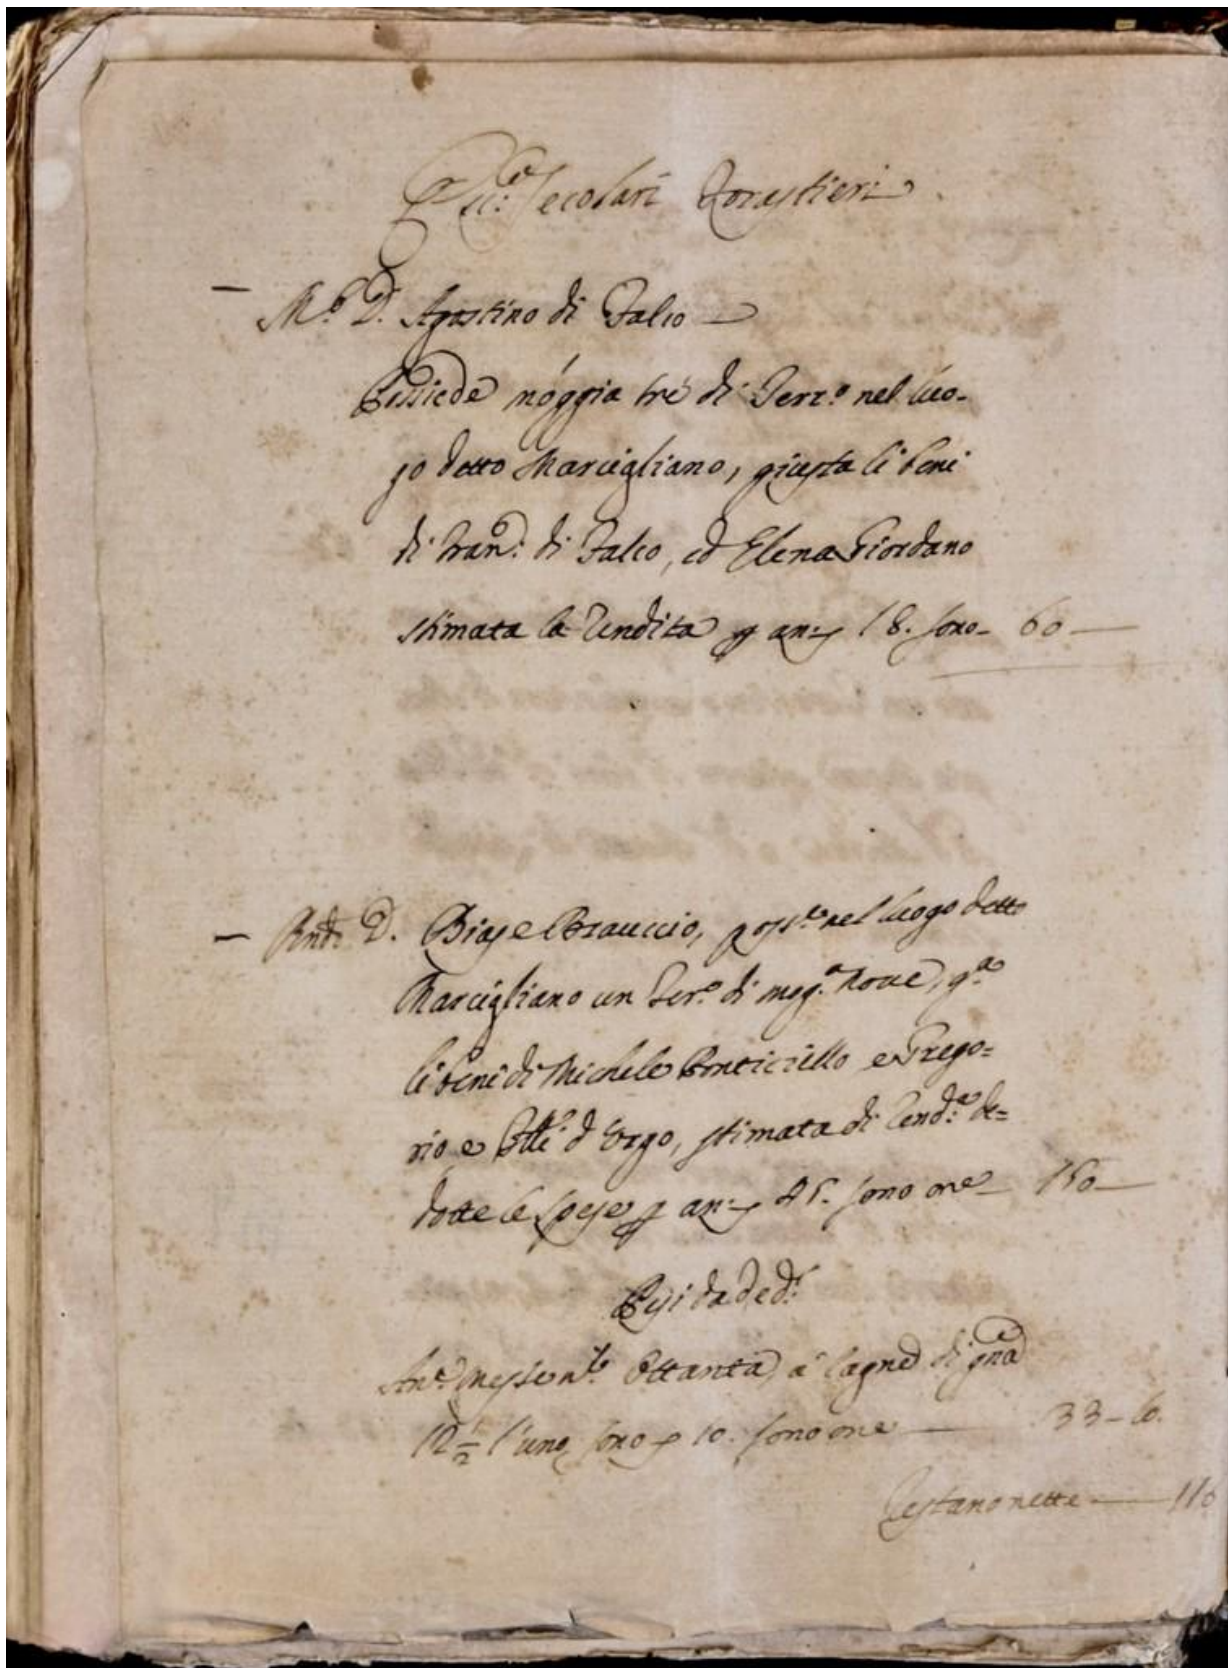 Secolari Forastieri
M.co D. Agostino di Falco
Possiede moggia trè di Terr.o nel luo-
go detto Marcigliano, giusta li beni
di Fran.co di Falco, ed Elena Giordano
stimata la rendita p an: 18. sono- 60
Rndo D. Biase Brauccio, poss.de nel luogo detto
Marcigliano un Terr.o di mog.a nove, g.ta
li beni di Michele Ponticiello e Grego=
rio e d'Urgo, stimata di rend.a de=
dotte le spese p an: 45. sono onc 150
Pesi da ded.si
An.e messe n.o Ottanta, a rag.ne di gna
12 1/2 l'una, sono 10. sono onc 33-10.
Restano nette 116